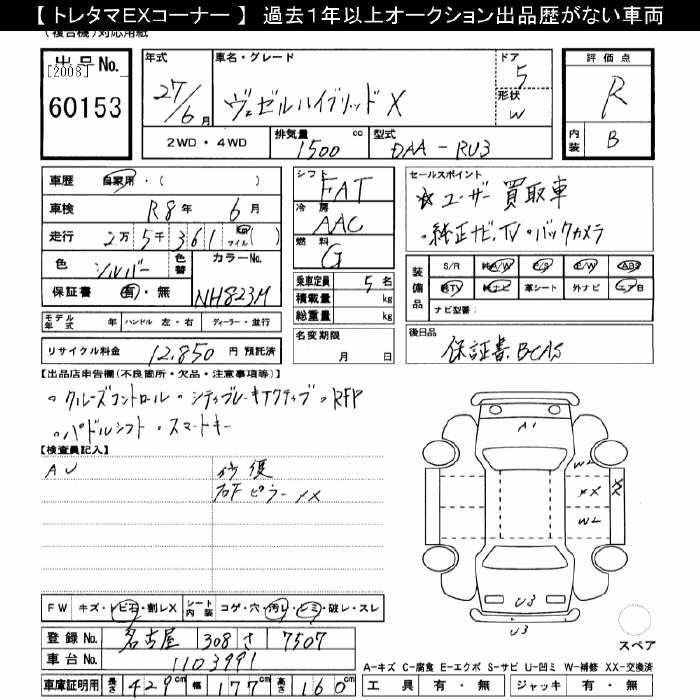 【 トレタマEXコーナー 】 過去1年以上オークション出品歴がない車両
(複合機)対応用紙
出品No.
[2008]
60153
年式
27/6月
車名・グレード
ヴェゼルハイブリッドX
ドア
5
形状
W
評価点
R
内装
B
2WD・4WD
排気量
1500 cc
型式
DAA-RU3
車歴 自家用・( )
車検 R8年 6月
走行 2万5千361 Km マイル( )
色 シルバー 色替 カラーNo. NH823M
保証書 有・無
モデル年式 年 ハンドル 左・右 ディーラー・並行
リサイクル料金 12,850 円 預託済
シフト
FAT
冷房
AAC
燃料
G
乗車定員 5名
積載量 kg
総重量 kg
名変期限
月 日
セールスポイント
☆ユーザー買取車
・純正ナビ、TV・バックカメラ
装備品
S/R 純A/W P/S P/W ABS
純TV 純ナビ 革シート 外ナビ エアB
ナビ型番:
後日品
保証書、BCAS
【出品店申告欄(不良箇所・欠品・注意事項等)】
・クルーズコントロール・シティブレーキアクティブ・RFP
・パドルシフト・スマートキー
【検査員記入】
AU
修復
右Fピラー XX
A1
W2
XX
XX
W2
U3
U3
スペア
FW キズ・トビ石・割レX シート内装 コゲ・穴・汚レ・シミ・破レ・スレ
登録No. 名古屋 308 さ 7507
車台No. 1103991
車庫証明用 長さ 429cm 幅 177cm 高さ 160cm
A-キズ C-腐食 E-エクボ S-サビ U-凹ミ W-補修 XX-交換済
工具 有・無 ジャッキ 有・無